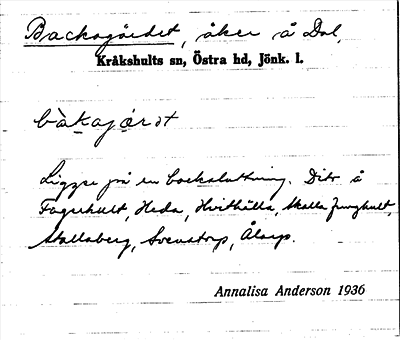 Backagärdet, åker å Dal,
Kråkshults sn, Östra hd, Jönk. l.
bàkajǝrdt
Ligger på en backsluttning. Dito å
Fagerhult, Heda, Hvithälla, Skalla Ljunghult,
Stallaberg, Svenstorp, Ålarp.
Annalisa Anderson 1936